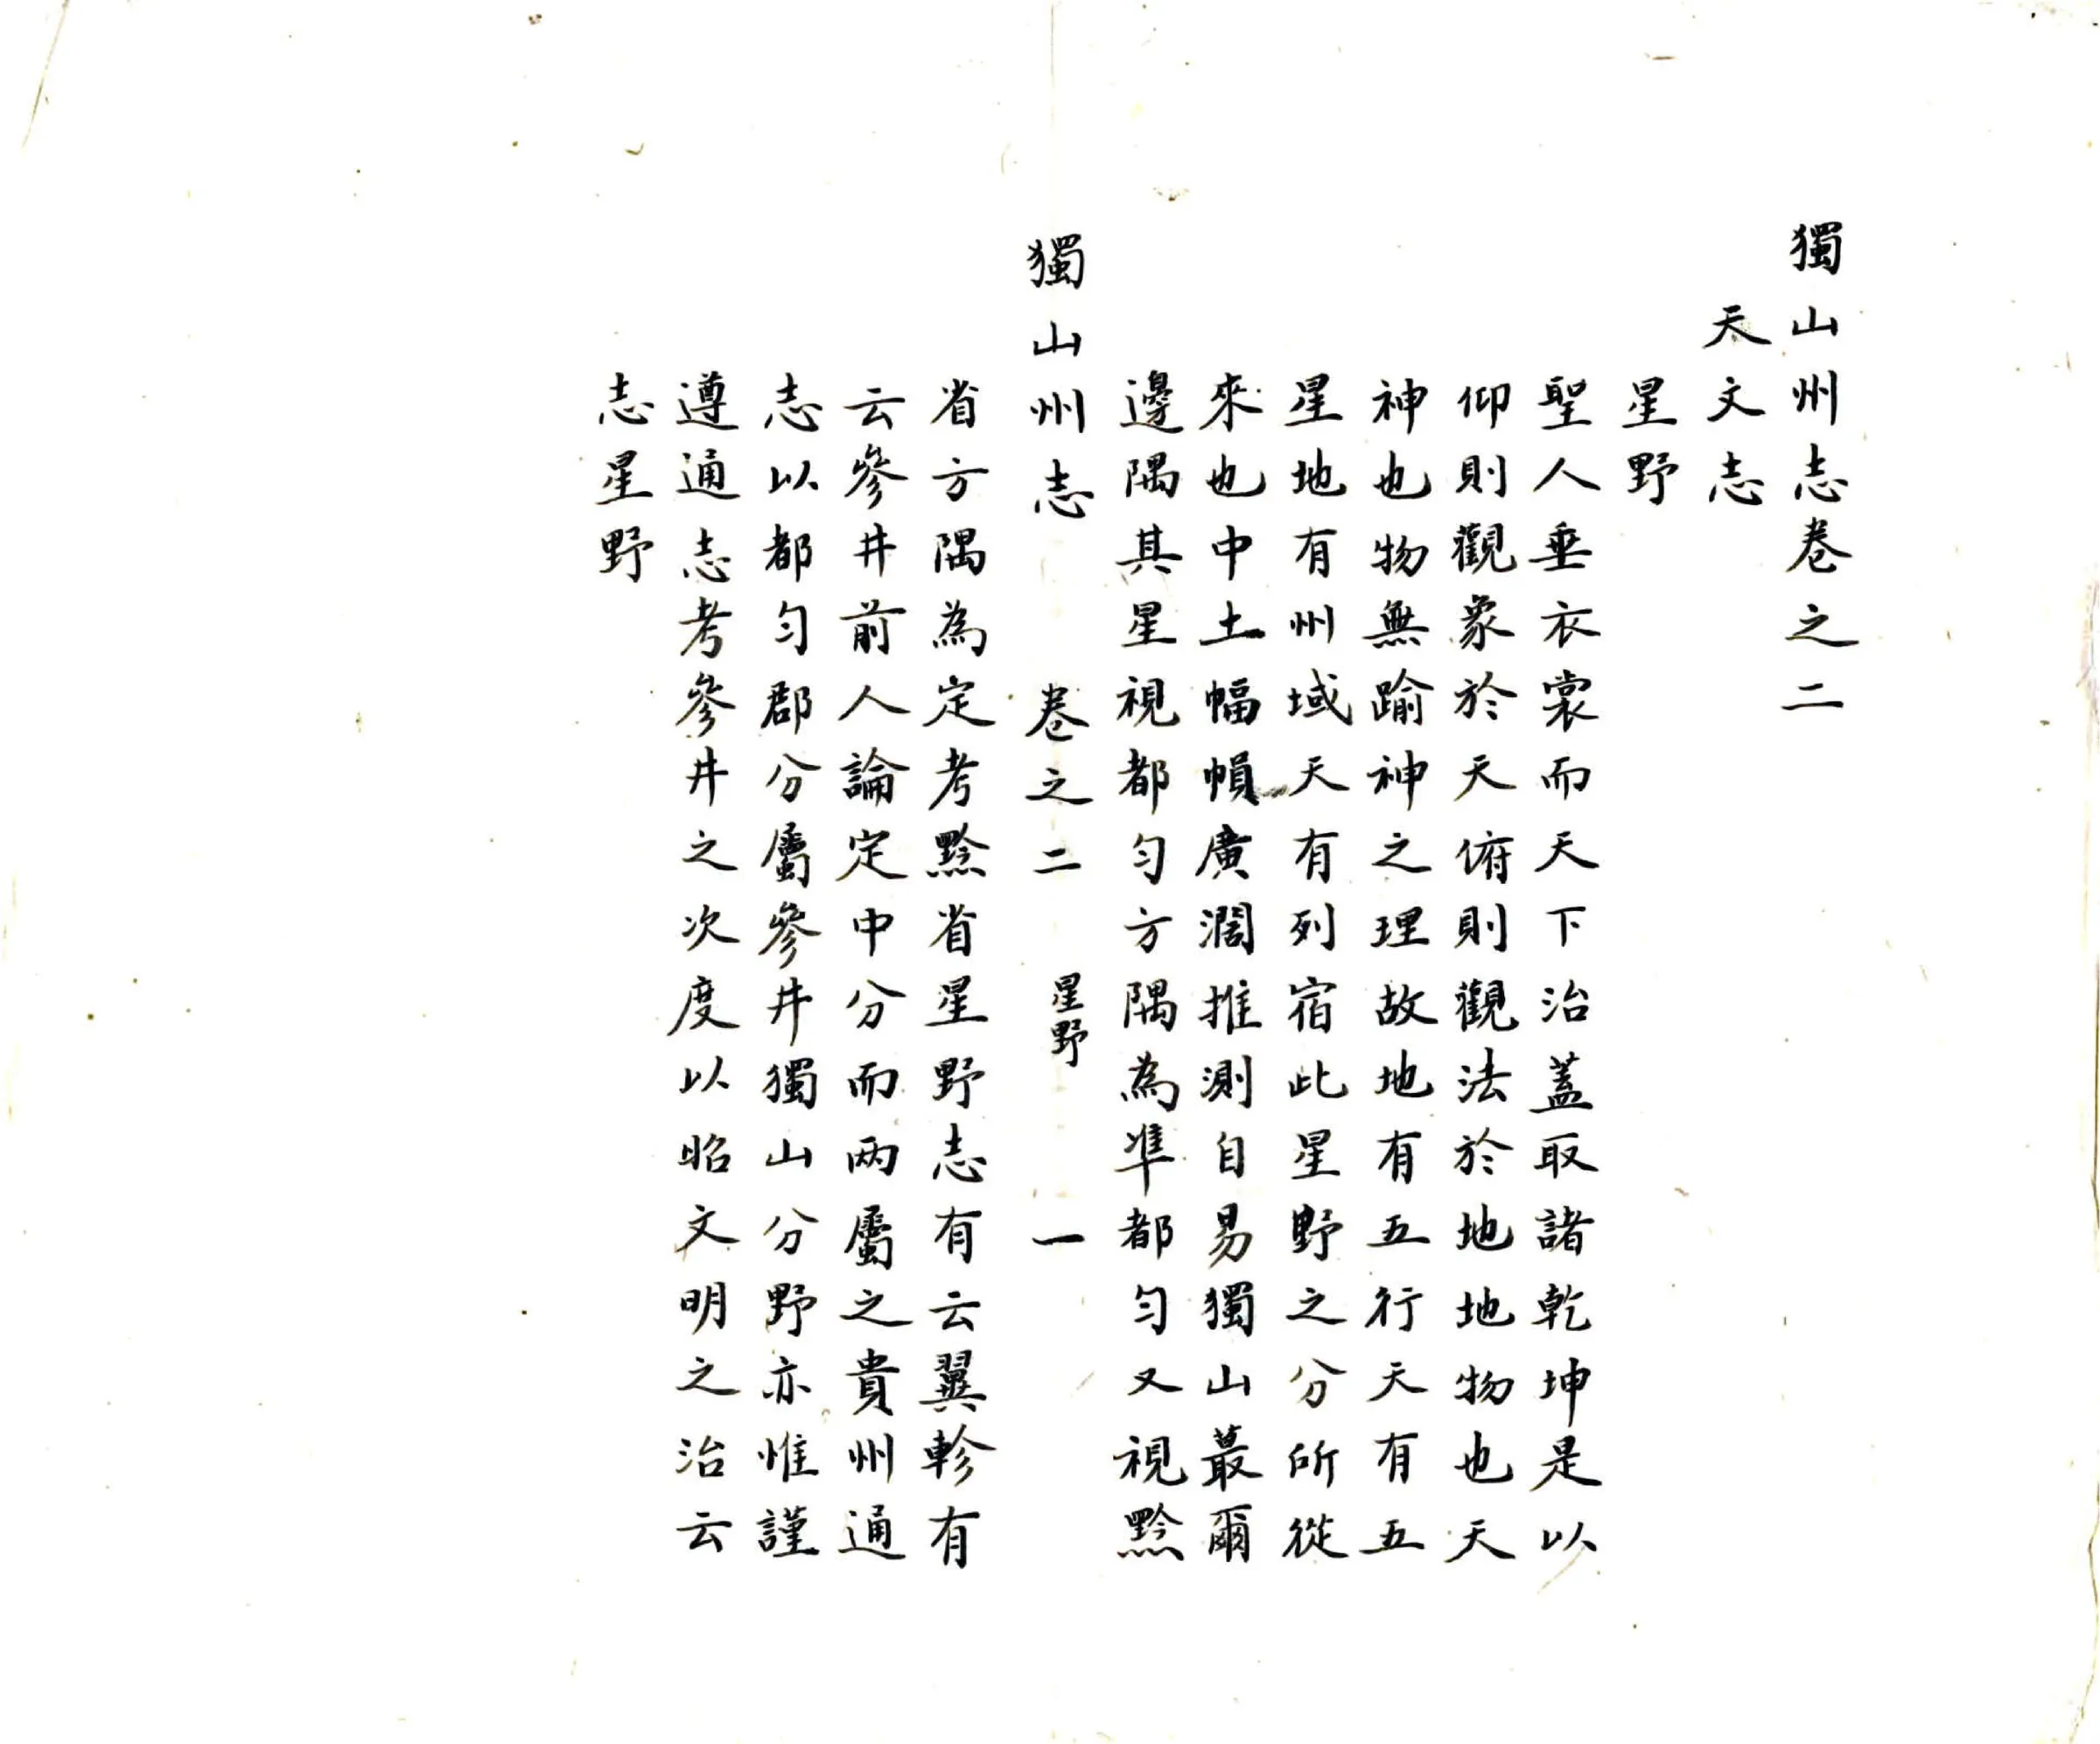 獨山州志卷之二
天文志
星野
聖人垂衣裳而天下治蓋取諸乾坤是以
仰則觀象於天俯則觀法於地地物也天
神也物無踰神之理故地有五行天有五
星地有州域天有列宿此星野之分所從
來也中土幅幀廣濶推測自易獨山蕞爾
邊隅其星視都勻方隅為準都勻又視黔
獨山州志 卷之二 星野 一
省方隅為定考黔省星野志有云翼軫有
云參井前人論定中分而兩屬之貴州通
志以都勻郡分屬參井獨山分野亦惟謹
遵通志考參井之次度以昭文明之治云
志星野